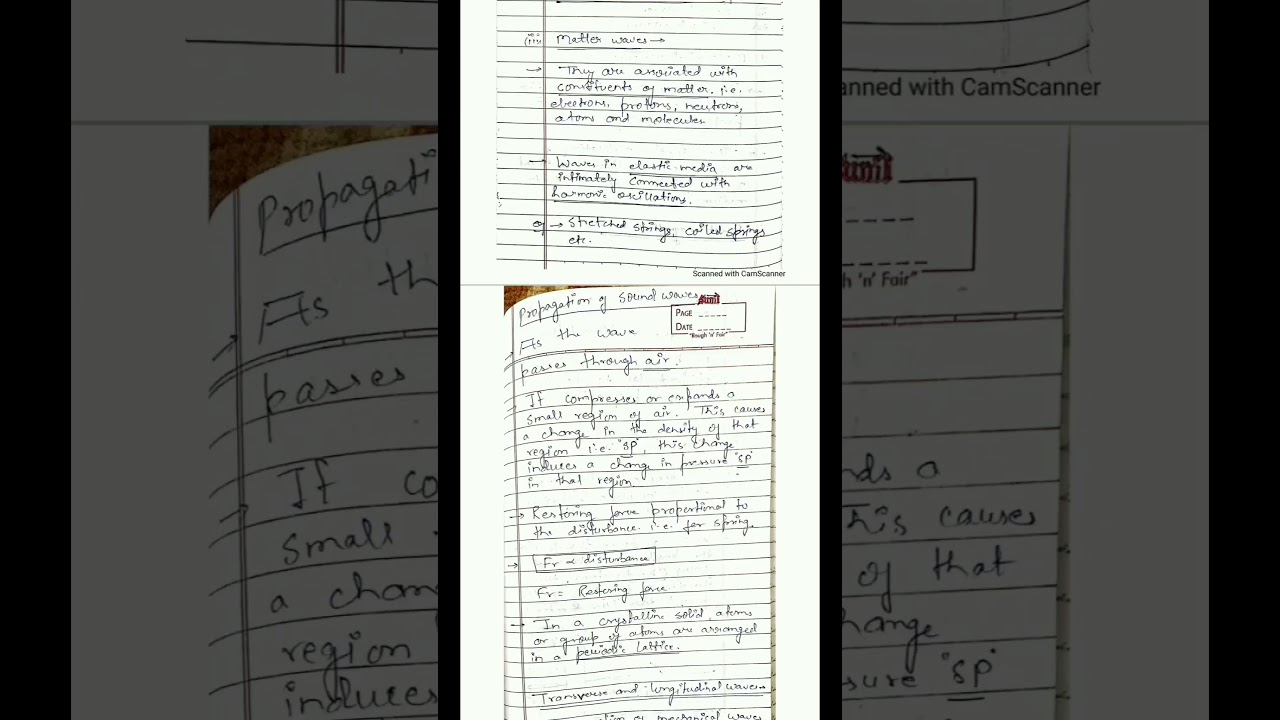 (iii) Matter waves →
→ They are associated with
constituents of matter. i.e.
electrons, protons, neutrons,
atoms and molecules.
→ Waves in elastic media are
intimately connected with
harmonic oscillations.
eg → Stretched strings, coiled springs
etc.
Scanned with CamScanner
Propagation of sound waves
Sunil
PAGE _ _ _ _ _
DATE _ _ _ _ _ _
"Rough 'n' Fair"
→ As the wave
passes through air.
→ If compresses or expands a
small region of air. This causes
a change in the density of that
region i.e. "Sp", this change
induces a change in pressure "Sp"
in that region.
→ Restoring force proportional to
the disturbance. i.e. for spring.
→ Fr ∝ disturbance
Fr = Restoring force
→ In a crystalline solid, atoms
or group of atoms are arranged
in a periodic lattice.
Transverse and longitudinal waves
of mechanical waves
Propagati
As th
passes
If co
small
a chan
region
induces
anned with CamScanner
unil
h 'n' Fair"
nds a
This causes
of that
hange
sure "Sp"